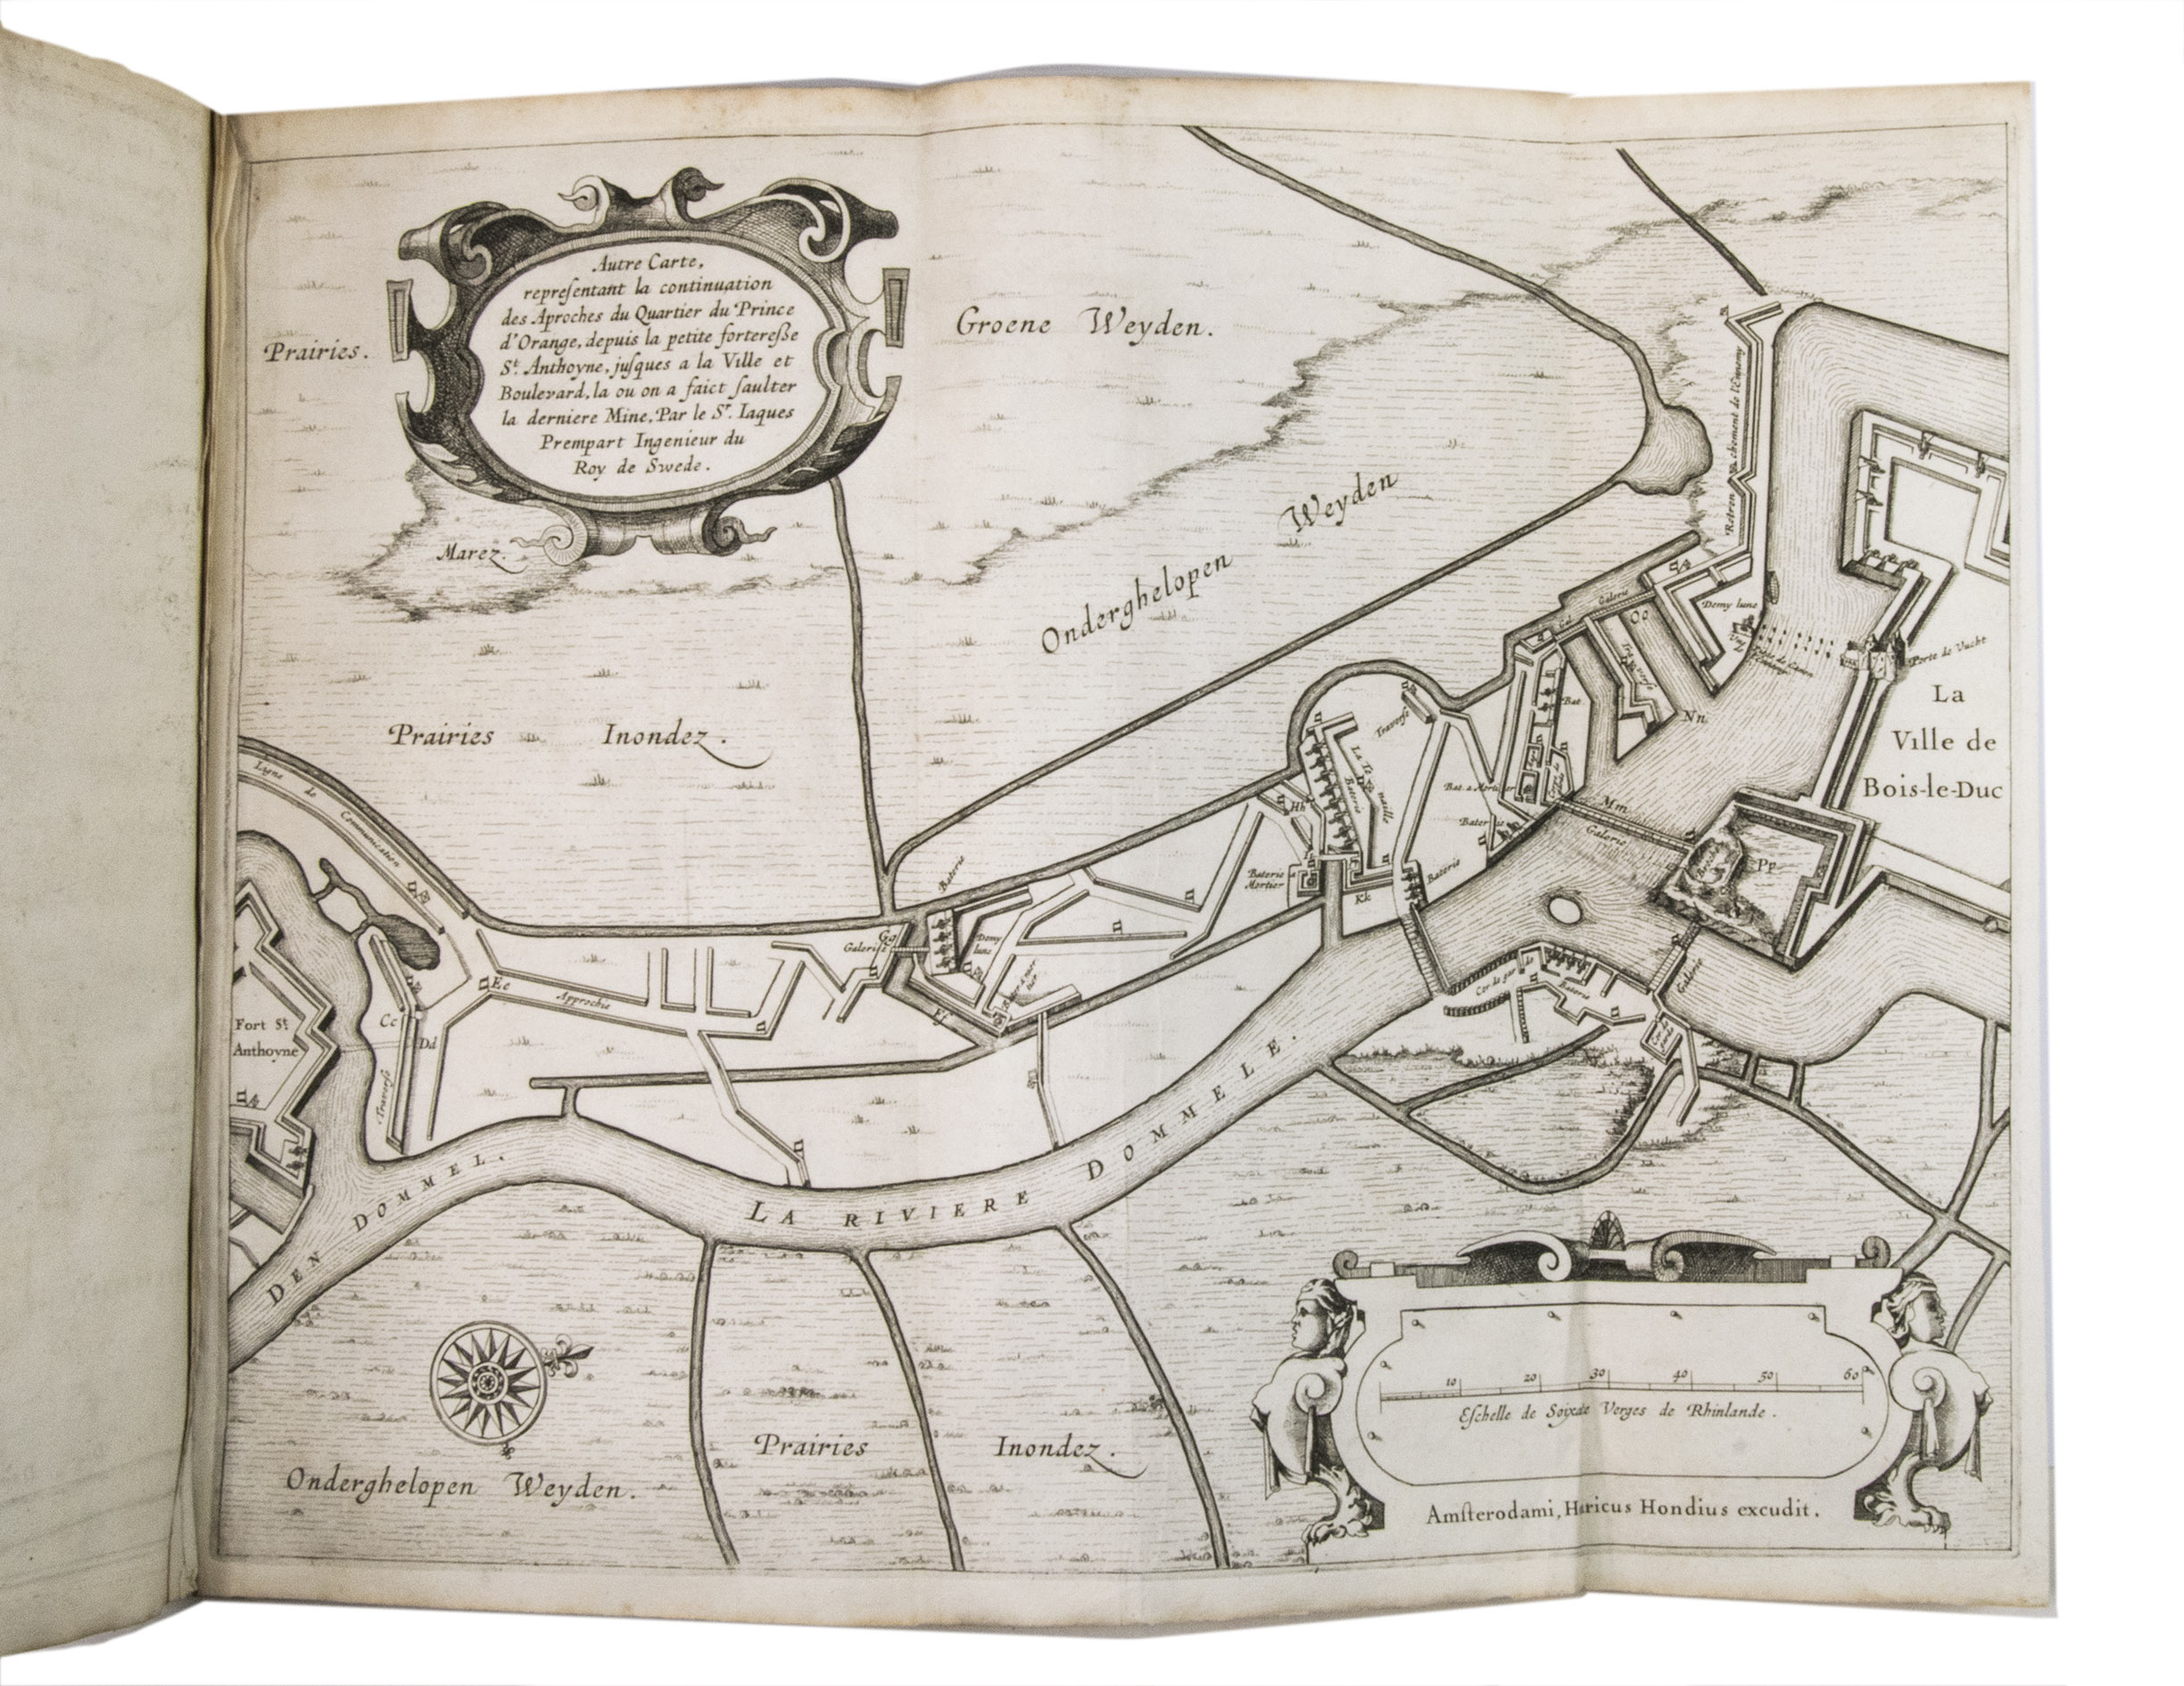 Autre Carte,
repreſentant la continuation
des Aproches du Quartier du Prince
d'Orange, depuis la petite fortereſſe
St. Anthoyne, juſques a la Ville et
Boulevard, la ou on a faict ſaulter
la derniere Mine, Par le Sr. Iaques
Prempart Ingenieur du
Roy de Swede.
Prairies.
Groene Weyden.
Marez.
Onderghelopen Weyden
Prairies Inondez.
Retrenchement de l'Ennemy
Galerie
Oo
Demy lune
Traverse
Nn
Porte de Vucht
La
Ville de
Bois-le-Duc
Bat.
Traverse
La Tenaille
Baterie
Bat. a Mortier
Baterie
Mm
Galerie
Pp
Hh
Baterie
Mortier
Kk
Baterie
Ligne de Communication
Baterie
Gg
Galerie
Demy
lune
Ff
Ee
Approche
Cc
Dd
Traverse
Fort St.
Anthoyne
Cor de garde
Baterie
Galerie
DEN DOMMEL.
LA RIVIERE DOMMELE.
Onderghelopen Weyden.
Prairies Inondez.
10 20 30 40 50 60
Eſchelle de Soixāte Verges de Rhinlande.
Amſterodami, Hēricus Hondius excudit.